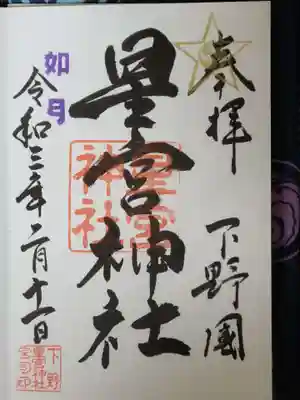 奉拝
下野國
星宮神社
星宮
神社
如月
令和三年二月十一日
下野
星宮神社